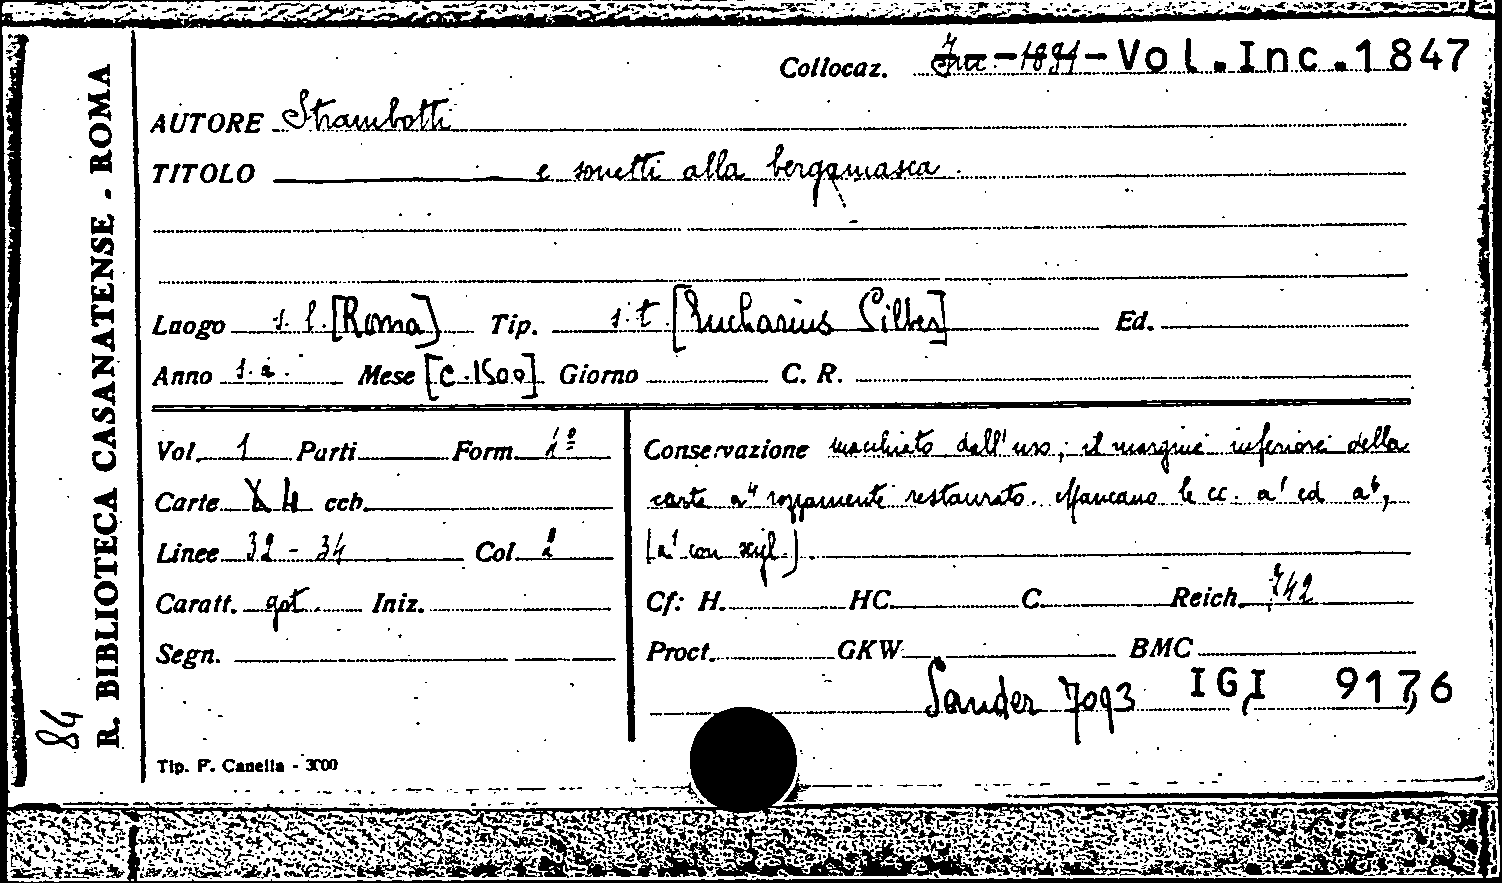 Collocaz. Inc. - 1891 - Vol.Inc.1847
AUTORE Strambotti
TITOLO e sonetti alla bergamasca.
Luogo s. l. [Roma] Tip. s. t. [Eucharius Silber] Ed.
Anno s. a. Mese [c. 1500] Giorno C. R.
Vol. 1 Parti Form.
Carte 4 ccb.
Linee 32 - 34 Col. 2
Caratt. got. Iniz.
Segn.
Conservazione macchiato dall'uso; il margine inferiore della
carte a4 rozzamente restaurato. Mancano le cc. a1 ed
(a1 con xil.)
Cf: H. HC. C. Reich. 742
Proct. GKW. BMC
Sander 7093 IGI 9176
Tip. F. Canella - 3000
R. BIBLIOTECA CASANATENSE - ROMA
84